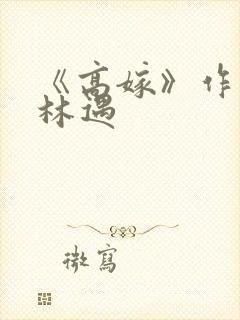 《高嫁》作
林遇
微寫